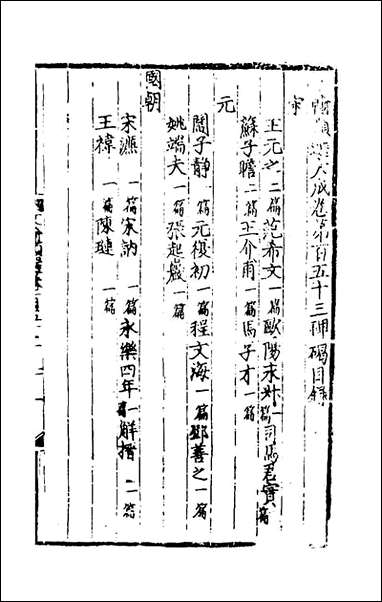 類選大成卷第百五十三碑碣目錄
宋
王元之二篇范希文一篇歐陽永叔一篇司馬君實一篇
蘇子瞻二篇王介甫一篇馬子才一篇
元
閻子靜一篇元復初一篇程文海一篇鄧善之一篇
姚端夫一篇張起巖一篇
國朝
宋濂一篇宋訥一篇永樂四年一篇解搢二篇
王褘一篇陳璉一篇